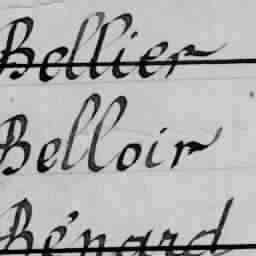 Bellier
Belloir
Bénard